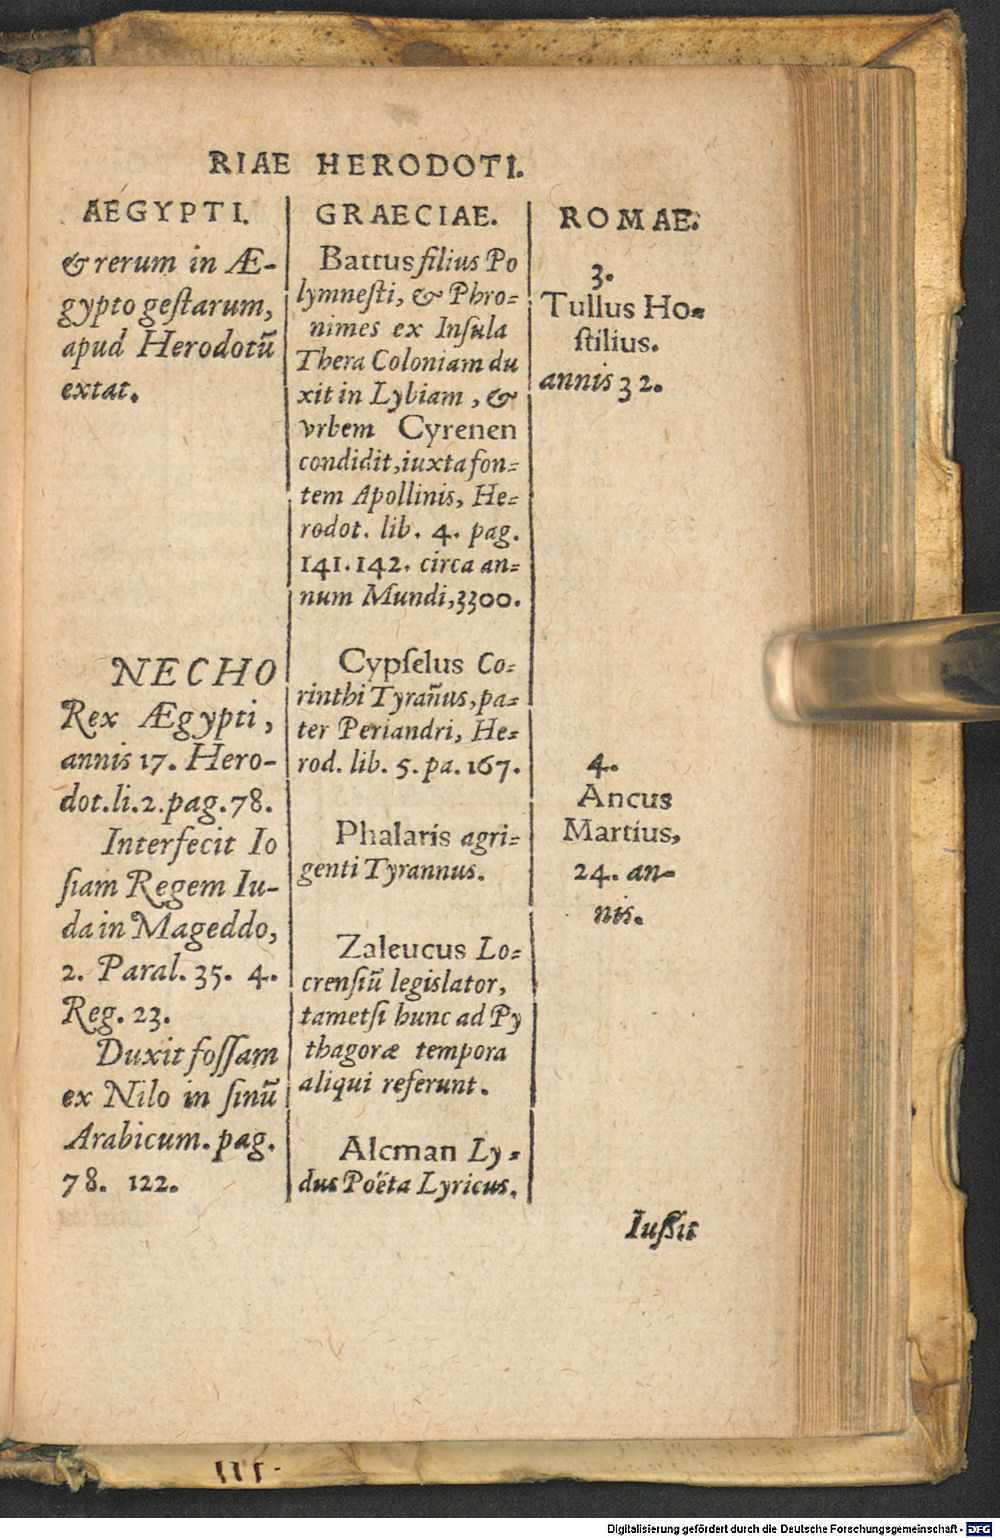 RIAE HERODOTI.
AEGYPTI.
& rerum in Æ-
gypto geſtarum,
apud Herodotũ
extat.
NECHO
Rex Ægypti,
annis 17. Hero-
dot.li.2.pag.78.
Interfecit Io
ſiam Regem Iu-
da in Mageddo,
2. Paral. 35. 4.
Reg. 23.
Duxit foſſam
ex Nilo in ſinũ
Arabicum. pag.
78. 122.
GRAECIAE.
Battus filius Po
lymneſti, & Phro-
nimes ex Inſula
Thera Coloniam du
xit in Lybiam, &
vrbem Cyrenen
condidit, iuxta fon-
tem Apollinis, He-
rodot. lib. 4. pag.
141. 142. circa an-
num Mundi, 3300.
Cypſelus Co-
rinthi Tyrañus, pa-
ter Periandri, He-
rod. lib. 5. pa. 167.
Phalaris agri-
genti Tyrannus.
Zaleucus Lo-
crenſiũ legislator,
tametſi hunc ad Py
thagoræ tempora
aliqui referunt.
Alcman Ly-
dus Poëta Lyricus.
ROMAE.
3.
Tullus Ho-
ſtilius.
annis 32.
4.
Ancus
Martius,
24. an-
nis.
Iuſſit
Digitalisierung gefördert durch die Deutsche Forschungsgemeinschaft - DFG